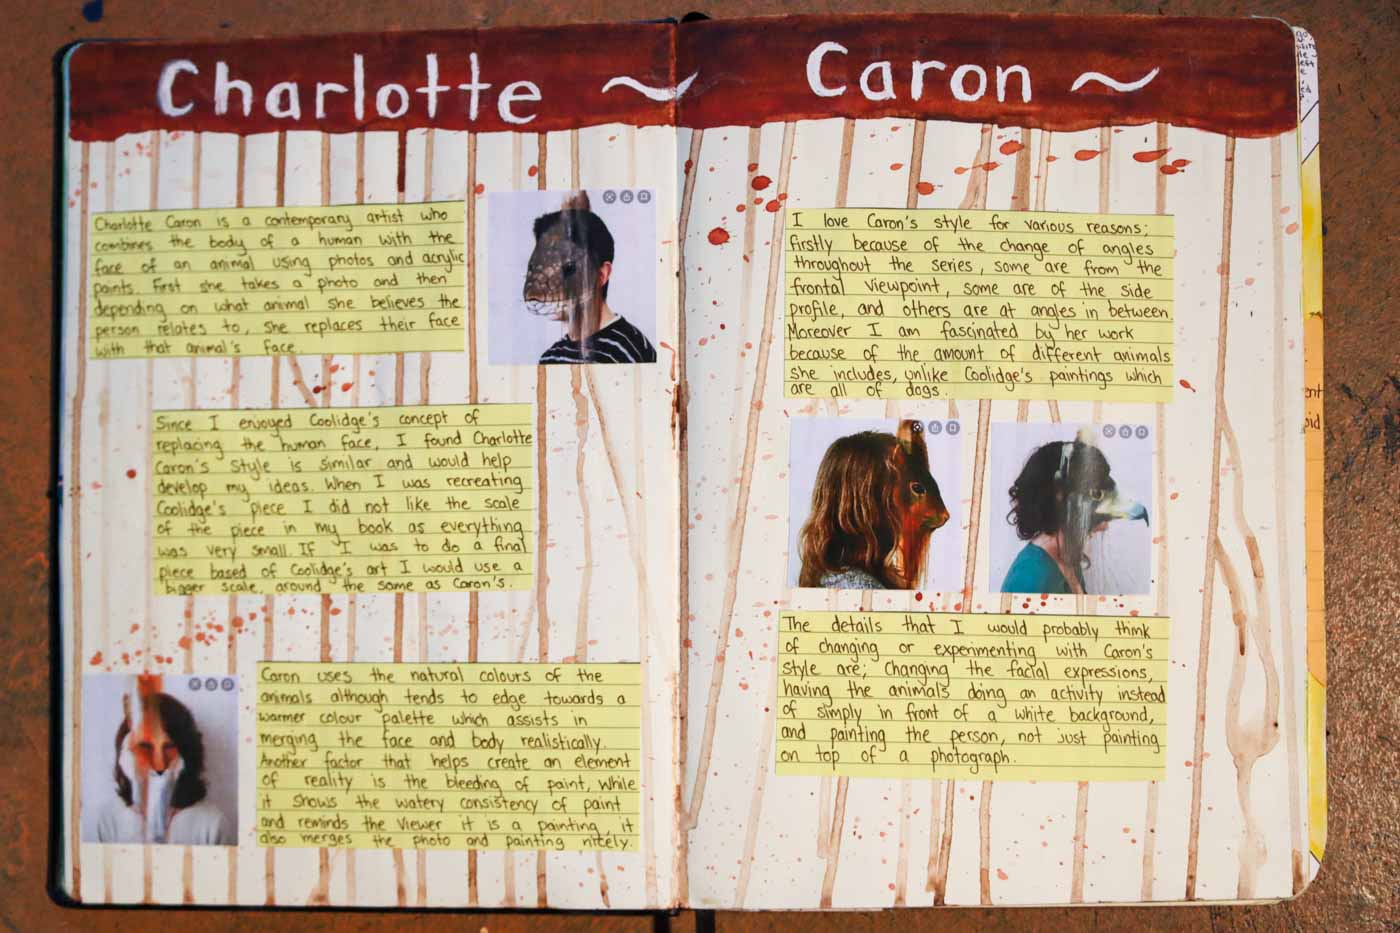 Charlotte ~ Caron ~
Charlotte Caron is a contemporary artist who
combines the body of a human with the
face of an animal using photos and acrylic
paints. First she takes a photo and then
depending on what animal she believes the
person relates to, she replaces their face
with that animal's face.
Since I enjoyed Coolidge's concept of
replacing the human face, I found Charlotte
Caron's style is similar and would help
develop my ideas. When I was recreating
Coolidge's piece I did not like the scale
of the piece in my book as everything
was very small. If I was to do a final
piece based of Coolidge's art I would use a
bigger scale, around the same as Caron's.
Caron uses the natural colours of the
animals although tends to edge towards a
warmer colour palette which assists in
merging the face and body realistically.
Another factor that helps create an element
of reality is the bleeding of paint, while
it shows the watery consistency of paint
and reminds the viewer it is a painting, it
also merges the photo and painting nicely.
I love Caron's style for various reasons;
firstly because of the change of angles
throughout the series, some are from the
frontal viewpoint, some are of the side
profile, and others are at angles in between.
Moreover I am fascinated by her work
because of the amount of different animals
she includes, unlike Coolidge's paintings which
are all of dogs.
The details that I would probably think
of changing or experimenting with Caron's
style are; changing the facial expressions,
having the animals doing an activity instead
of simply in front of a white background,
and painting the person, not just painting
on top of a photograph.